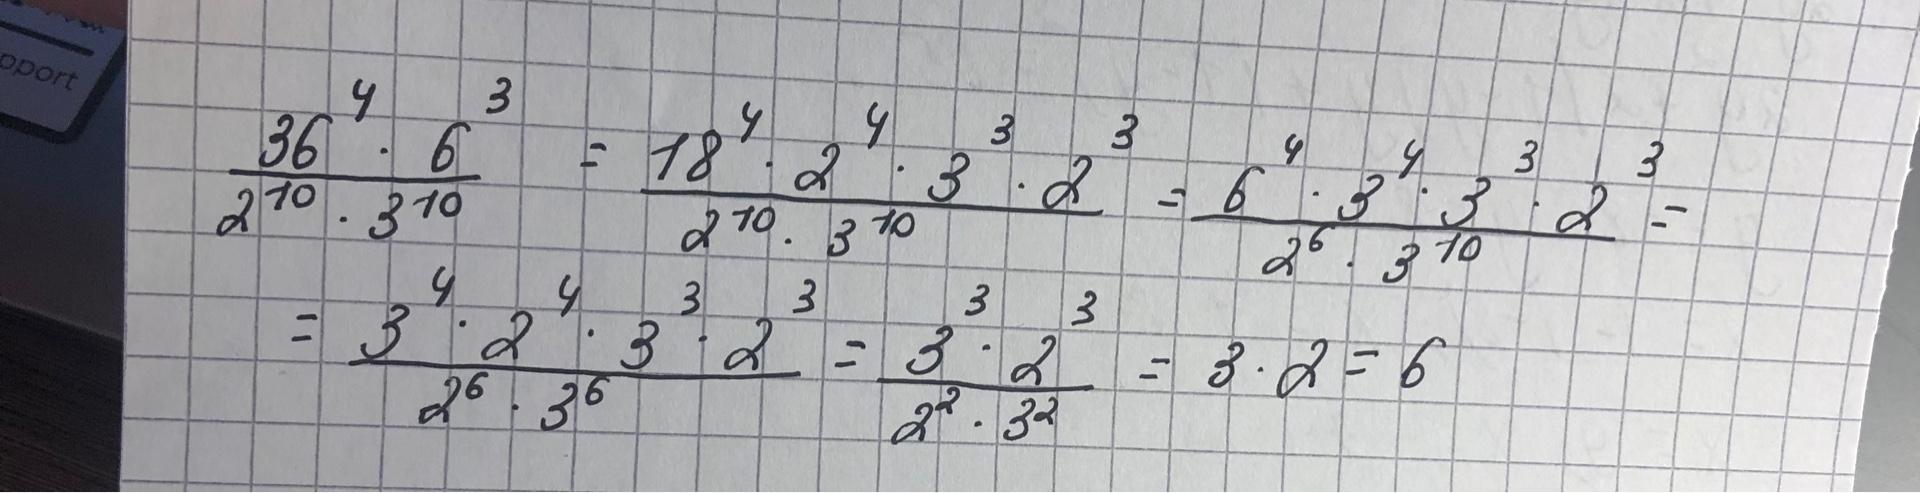 pport
36⁴ · 6³ / 2¹⁰ · 3¹⁰ = 18⁴ · 2⁴ · 3³ · 2³ / 2¹⁰ · 3¹⁰ = 6⁴ · 3⁴ · 3³ · 2³ / 2⁶ · 3¹⁰ =
= 3⁴ · 2⁴ · 3³ · 2³ / 2⁶ · 3⁶ = 3³ · 2³ / 2² · 3² = 3 · 2 = 6